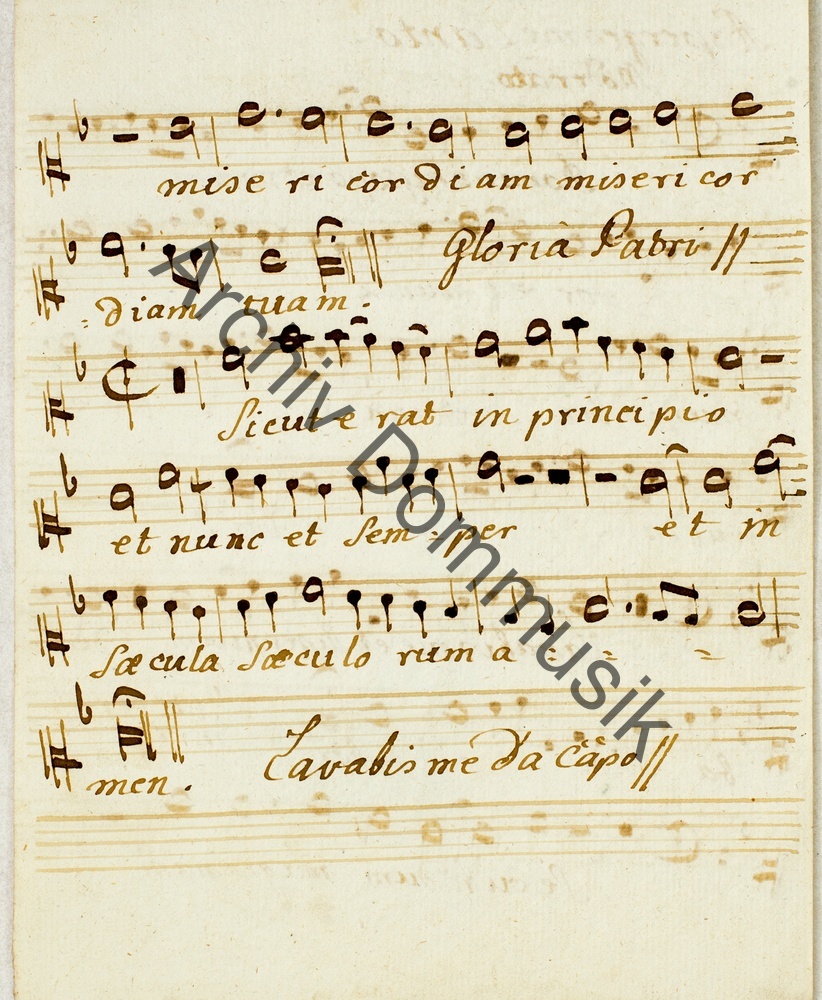 mise ri cor diam miseri cor
Gloria Patri //
= diam tuam.
Sicut e rat in principio
et nunc et sem = per et in
sæcula sæculo rum a = = =
men. Lavabis me Da Capo //
Archiv Dommusik